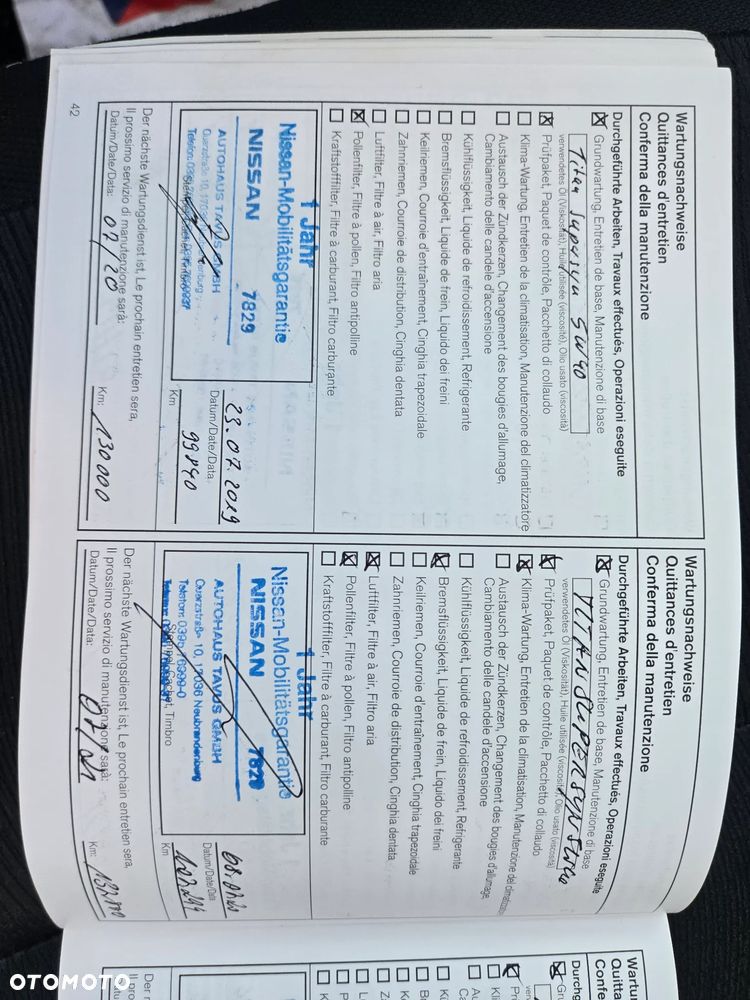 Wartungsnachweise
Quittances d'entretien
Conferma della manutenzione
Durchgeführte Arbeiten, Travaux effectués, Operazioni eseguite
Grundwartung, Entretien de base, Manutenzione di base
Titan Supersyn 5W40
verwendetes Öl (Viskosität), Huile utilisée (viscosité), Olio usato (viscosità)
Prüfpaket, Paquet de contrôle, Pacchetto di collaudo
Klima-Wartung, Entretien de la climatisation, Manutenzione del climatizzatore
Austausch der Zündkerzen, Changement des bougies d'allumage,
Cambiamento delle candele d'accensione
Kühlflüssigkeit, Liquide de refroidissement, Refrigerante
Bremsflüssigkeit, Liquide de frein, Liquido dei freini
Keilriemen, Courroie d'entraînement, Cinghia trapezoidale
Zahnriemen, Courroie de distribution, Cinghia dentata
Luftfilter, Filtre à air, Filtro aria
Pollenfilter, Filtre à pollen, Filtro antipolline
Kraftstofffilter, Filtre à carburant, Filtro carburante
1 Jahr
Nissan-Mobilitätsgarantie
NISSAN 7829
AUTOHAUS TAVUS GMBH
23.07.2019
Datum/Date/Data
99840
Km
Der nächste Wartungsdienst ist, Le prochain entretien sera,
Il prossimo servizio di manutenzione sarà:
Datum/Date/Data: 07/20 Km: 130000
42
Wartungsnachweise
Quittances d'entretien
Conferma della manutenzione
Durchgeführte Arbeiten, Travaux effectués, Operazioni eseguite
Grundwartung, Entretien de base, Manutenzione di base
TITAN SUPERSYN 5W40
verwendetes Öl (Viskosität), Huile utilisée (viscosité), Olio usato (viscosità)
Prüfpaket, Paquet de contrôle, Pacchetto di collaudo
Klima-Wartung, Entretien de la climatisation, Manutenzione del climatizzatore
Austausch der Zündkerzen, Changement des bougies d'allumage,
Cambiamento delle candele d'accensione
Kühlflüssigkeit, Liquide de refroidissement, Refrigerante
Bremsflüssigkeit, Liquide de frein, Liquido dei freini
Keilriemen, Courroie d'entraînement, Cinghia trapezoidale
Zahnriemen, Courroie de distribution, Cinghia dentata
Luftfilter, Filtre à air, Filtro aria
Pollenfilter, Filtre à pollen, Filtro antipolline
Kraftstofffilter, Filtre à carburant, Filtro carburante
1 Jahr
Nissan-Mobilitätsgarantie
NISSAN 7829
AUTOHAUS TAVUS GMBH
Quarzstraße 10, 17036 Neubrandenburg
Timbro
Datum/Date/Data
Km
Der nächste Wartungsdienst ist, Le prochain entretien sera,
Il prossimo servizio di manutenzione sarà:
Datum/Date/Data: 07/21 Km:
OTOMOTO